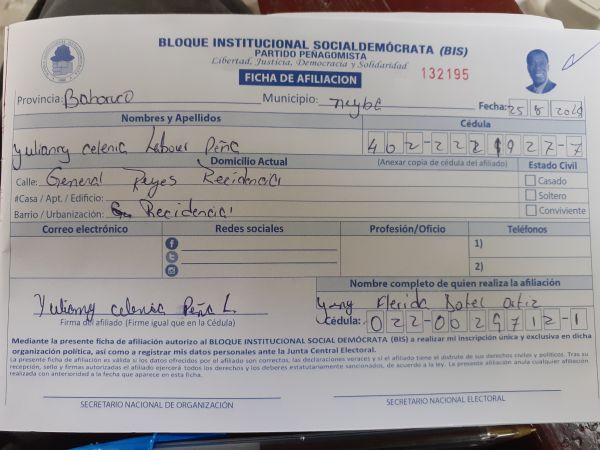 BLOQUE INSTITUCIONAL SOCIALDEMÓCRATA (BIS)
PARTIDO PEÑAGOMISTA
Libertad, Justicia, Democracia y Solidaridad
FICHA DE AFILIACION
132195
Provincia: Bahoruco Municipio: Neyba Fecha: 25 8 2019
Nombres y Apellidos Cédula
Yulianny celenia Labour Peña 402-2281927-7
Domicilio Actual (Anexar copia de cédula del afiliado) Estado Civil
Calle: General Reyes Recidencial Casado
#Casa / Apt. / Edificio: Soltero
Barrio / Urbanización: Recidencial Conviviente
Correo electrónico Redes sociales Profesión/Oficio Teléfonos
1)
2)
Nombre completo de quien realiza la afiliación
Yulianny celenia Peña L. Florida Ortiz
Firma del afiliado (Firme igual que en la Cédula) Cédula: 022-0029712-1
Mediante la presente ficha de afiliación autorizo al BLOQUE INSTITUCIONAL SOCIAL DEMÓCRATA (BIS) a realizar mi inscripción única y exclusiva en dicha
organización política, así como a registrar mis datos personales ante la Junta Central Electoral.
(La presente ficha de afiliación es válida si los datos ofrecidos por el afiliado son correctos, las declaraciones veraces y si el afiliado tiene el disfrute de sus derechos civiles y políticos. Tras su
recepción, sello y firmas autorizadas el afiliado ejercerá todos los derechos y los deberes estatutariamente sancionados, de acuerdo a la ley. La presente afiliación anula cualquier afiliación
realizada con anterioridad a la fecha que aparece en esta ficha.
SECRETARIO NACIONAL DE ORGANIZACIÓN SECRETARIO NACIONAL ELECTORAL